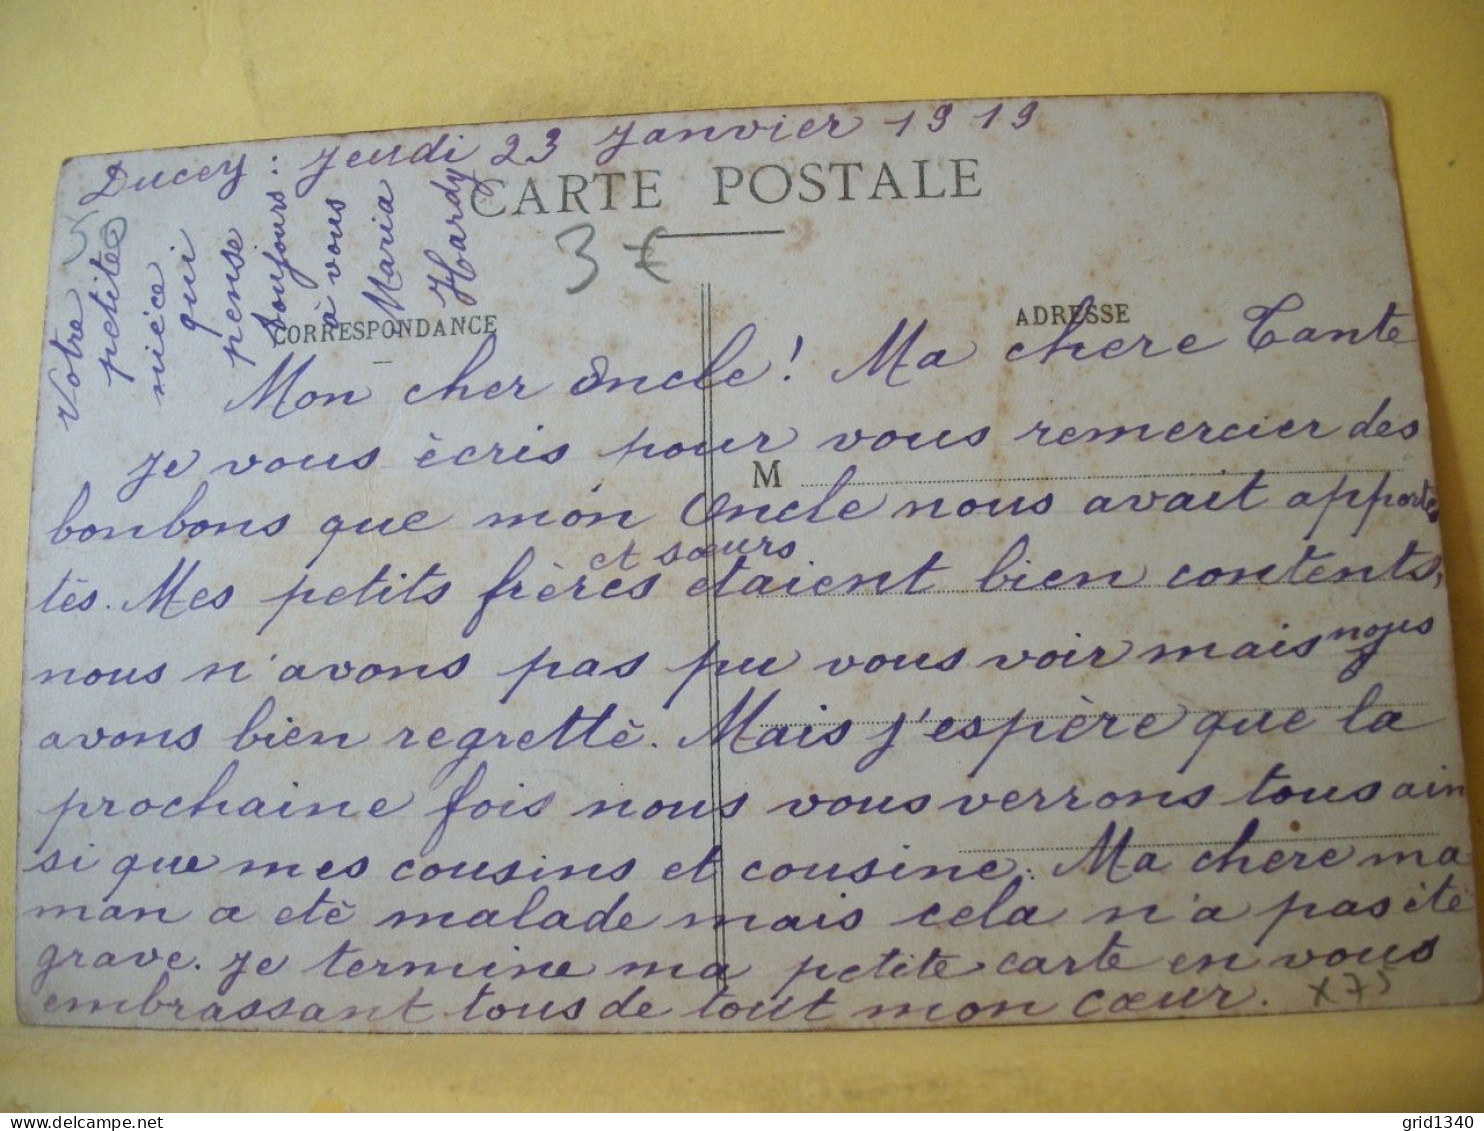 Ducey : jeudi 23 Janvier 1919
CARTE POSTALE
3 €
50
Votre
petite
nièce
qui
pense
toujours
à vous
Maria
Hardy
CORRESPONDANCE
ADRESSE
Mon cher Oncle! Ma chere Tante
je vous écris pour vous remercier des
M
bonbons que mon Oncle nous avait apportés
et sœurs
tés. Mes petits frères etaient bien contents,
nous n'avons pas pu vous voir mais nous
avons bien regretté. Mais j'espère que la
prochaine fois nous vous verrons tous ain
si que mes cousins et cousine. Ma chere ma
man a eté malade mais cela n'a pas été
grave. Je termine ma petite carte en vous
embrassant tous de tout mon cœur.
x75
grid1340